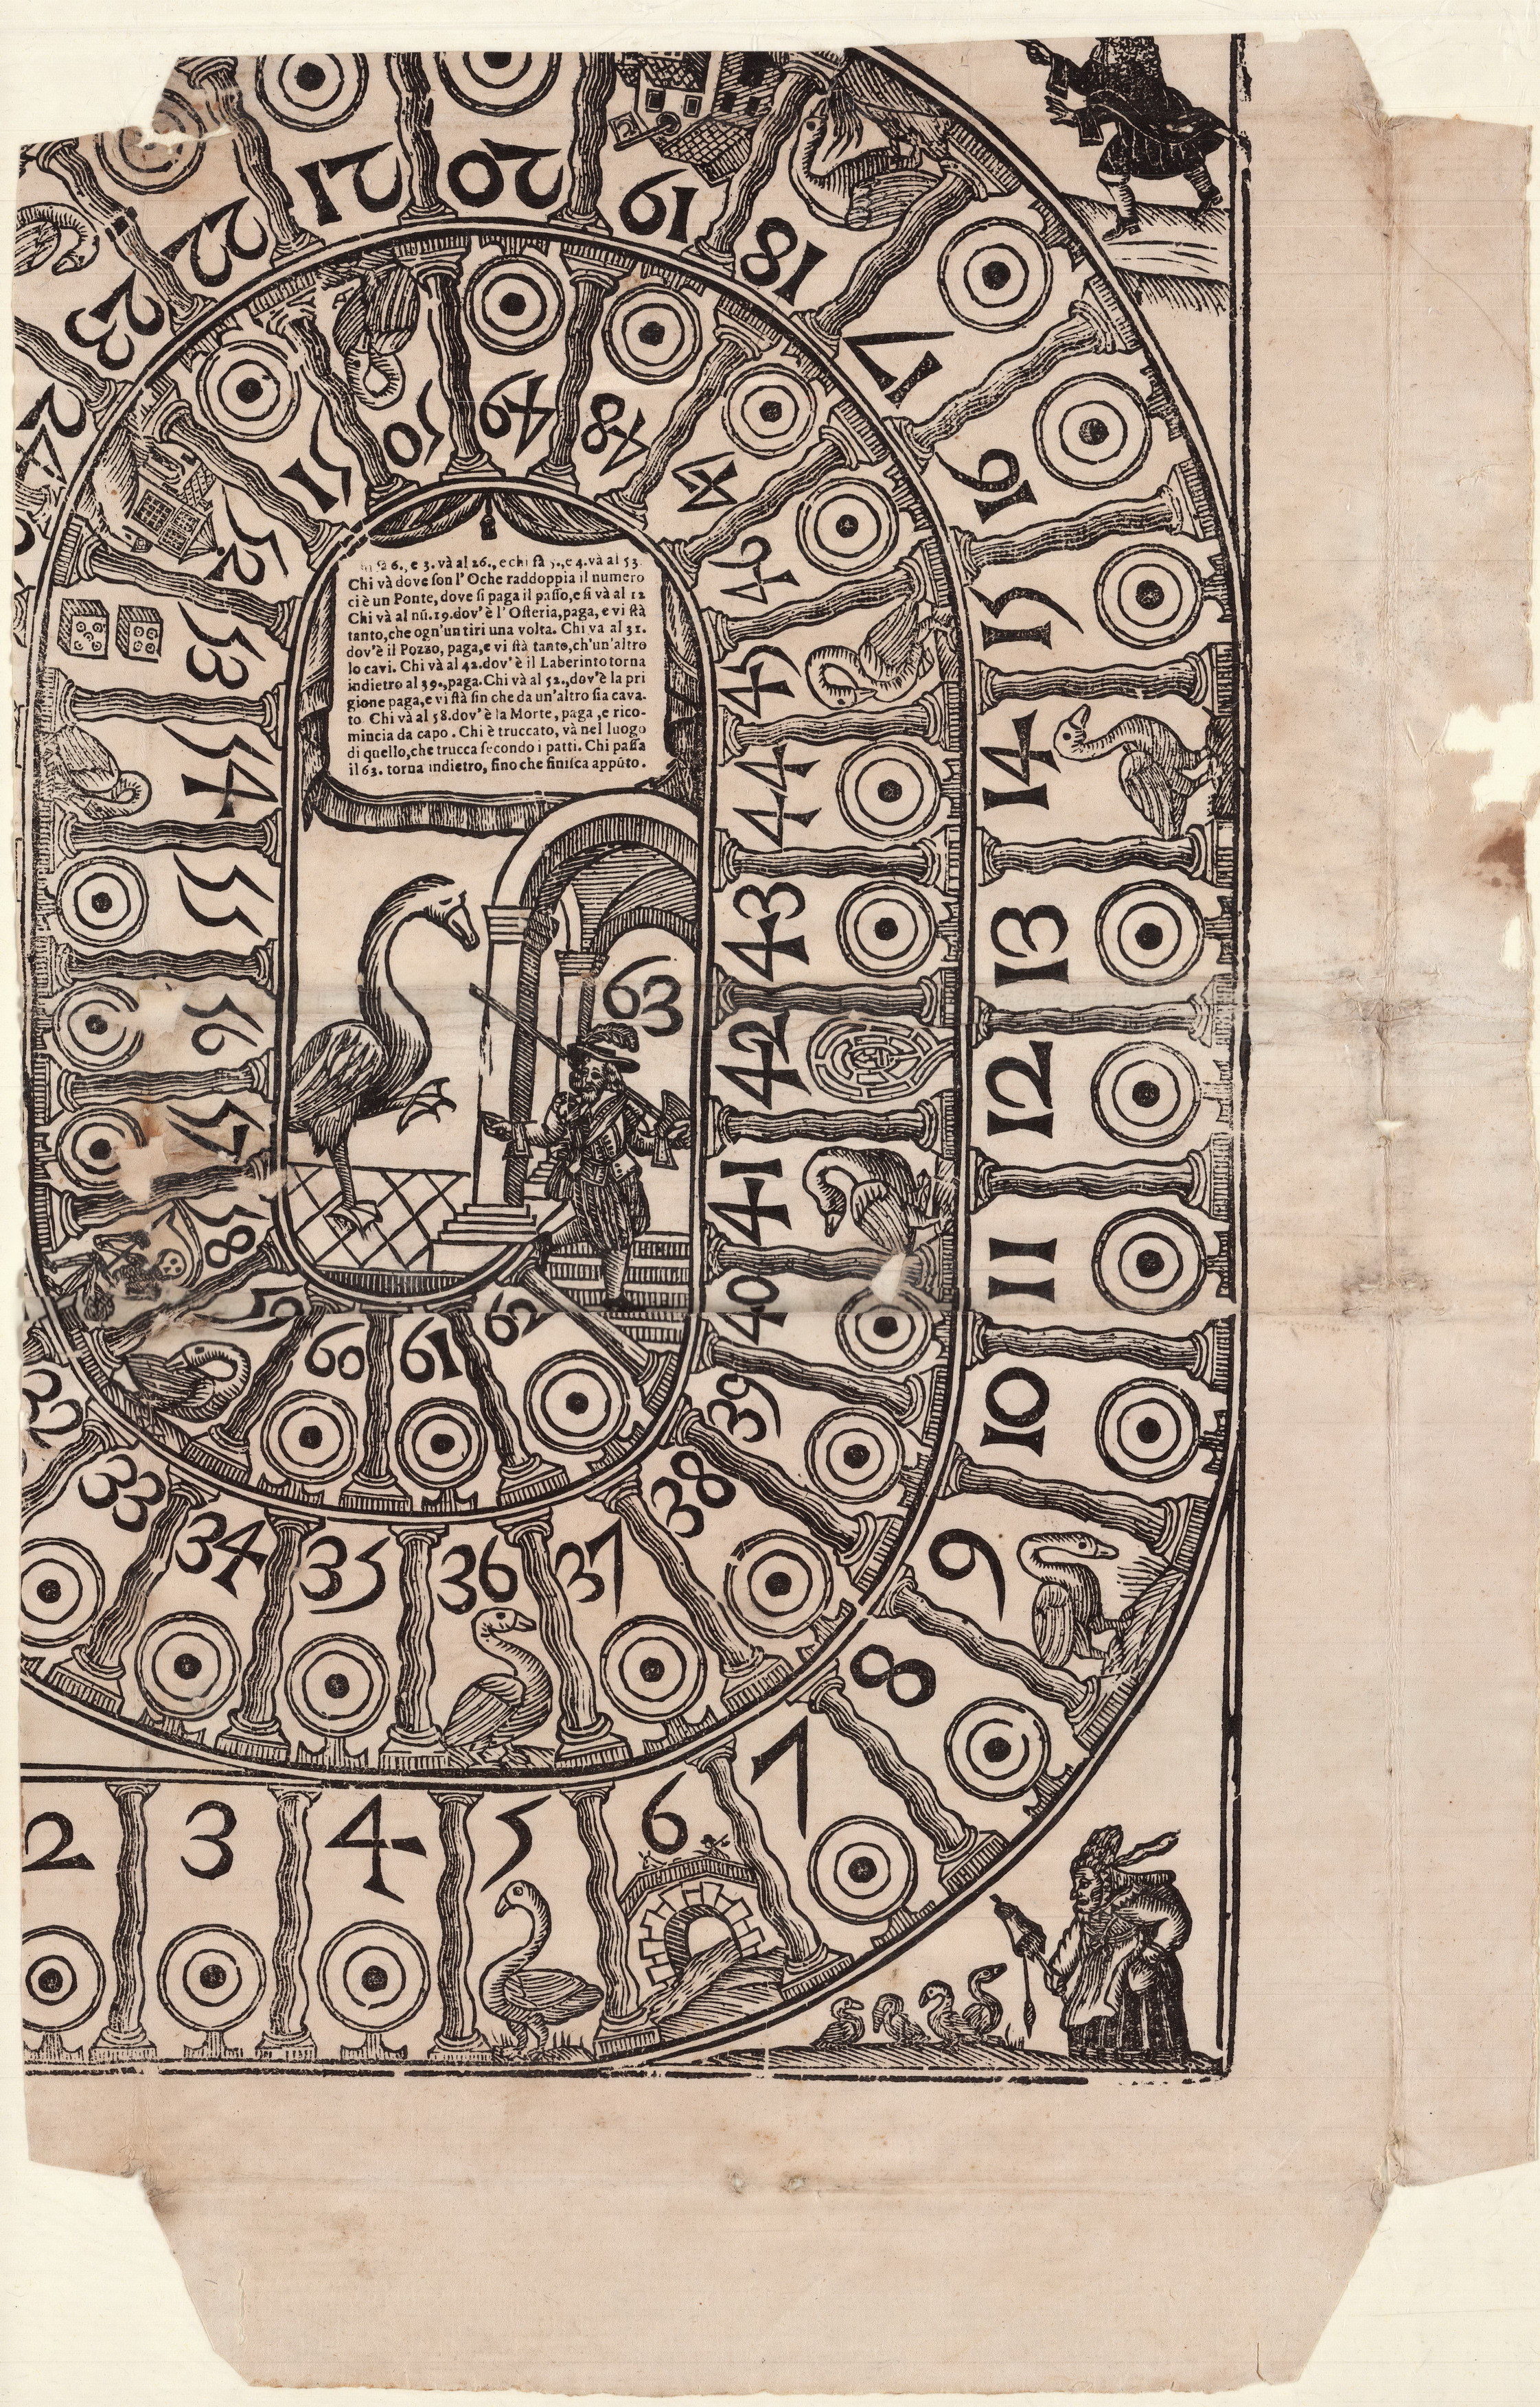 6., e 3. và al 26., e chi fà 5., e 4. và al 53.
Chi và dove ſon l' Oche raddoppia il numero
ci è un Ponte, dove ſi paga il paſſo, e ſi và al 12
Chi và al nũ. 19. dov' è l' Oſteria, paga, e vi ſtà
tanto, che ogn' un tiri una volta. Chi va al 31.
dov'è il Pozzo, paga, e vi ſtà tanto, ch'un'altro
lo cavi. Chi và al 42. dov' è il Laberinto torna
indietro al 39., paga. Chi và al 52., dov'è la pri
gione paga, e vi ſtà fin che da un'altro ſia cava-
to. Chi và al 58. dov' è la Morte, paga, e rico-
mincia da capo. Chi è truccato, và nel luogo
di quello, che trucca ſecondo i patti. Chi paſſa
il 63. torna indietro, fino che finiſca appũto.
2
3
4
5
6
7
8
9
10
11
12
13
14
15
16
17
18
19
20
21
22
23
24
33
34
35
36
37
38
39
40
41
42
43
44
45
46
48
49
50
51
52
53
54
55
56
57
58
60
61
62
63